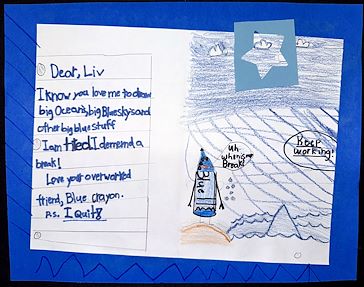 Dear, Liv
I know you love me to draw
big Oceans, big Blueskys and
other big blue stuff
I am tired I demend a
break!
Love your overworked
friend, Blue crayon.
P.s. I Quit!
uh
when's my
break!
Keep
working!
Blue